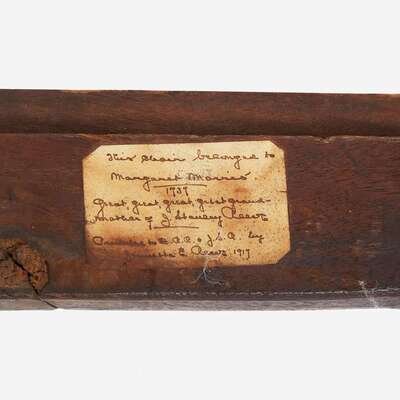 This chair belonged to
Margaret Morris
1737
Great, great, great, great grand-
mother of J. Stanley Reeve
to & J.S.R. by
C. Reeve, 1917